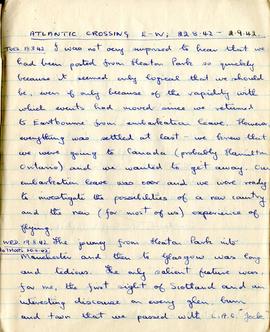 ATLANTIC CROSSING E-W, 22.8.42 - 2.9.42.
TUES. 18.8.42 I was not very surprised to hear that we
had been posted from Heaton Park so quickly
because it seemed only logical that we should
be, even if only because of the rapidity with
which events had moved since we returned
to Eastbourne from embarkation leave. However,
everything was settled at last - we knew that
we were going to Canada (probably Hamilton
Ontario) and we wanted to get away. Our
embarkation leave was over and we were ready
to investigate the possibilities of a new country
and the new (for most of us) experience of
flying.
WED. 19.8.42 The journey from Heaton Park into
Manchester and then to Glasgow was long
and tedious. The only salient feature were,
for me, the first sight of Scotland and an
interesting discourse on every glen, burn
and town that we passed with L.A.C. Jock